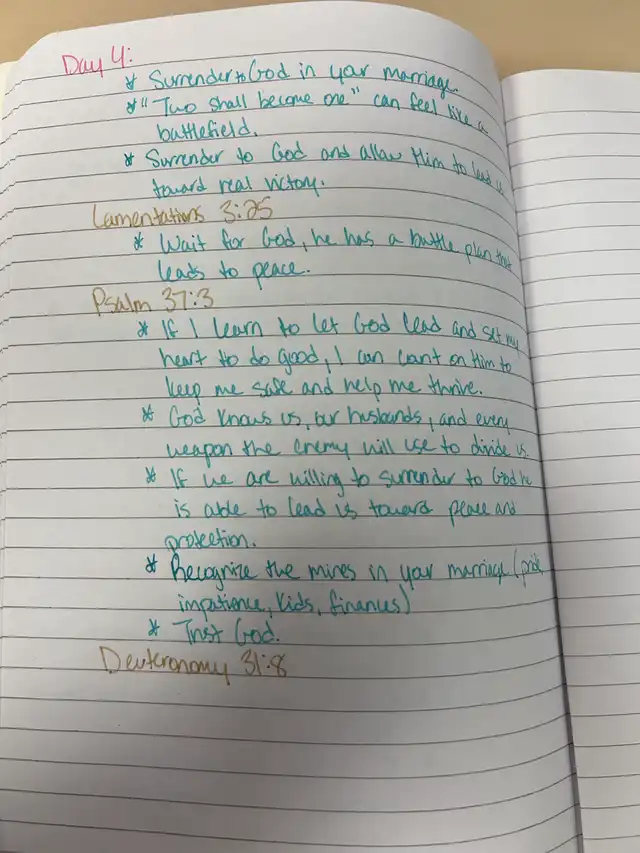 Day 4:
* Surrender to God in your marriage.
* "Two shall become one" can feel like a
battlefield.
* Surrender to God and allow Him to lead us
toward real victory.
Lamentations 3:25
* Wait for God, he has a battle plan that
leads to peace.
Psalm 37:3
* If I learn to let God lead and set my
heart to do good, I can count on Him to
keep me safe and help me thrive.
* God knows us, our husbands, and every
weapon the enemy will use to divide us.
* If we are willing to surrender to God he
is able to lead us toward peace and
protection.
* Recognize the mines in your marriage (pride,
impatience, kids, finances)
* Trust God.
Deuteronomy 31:8